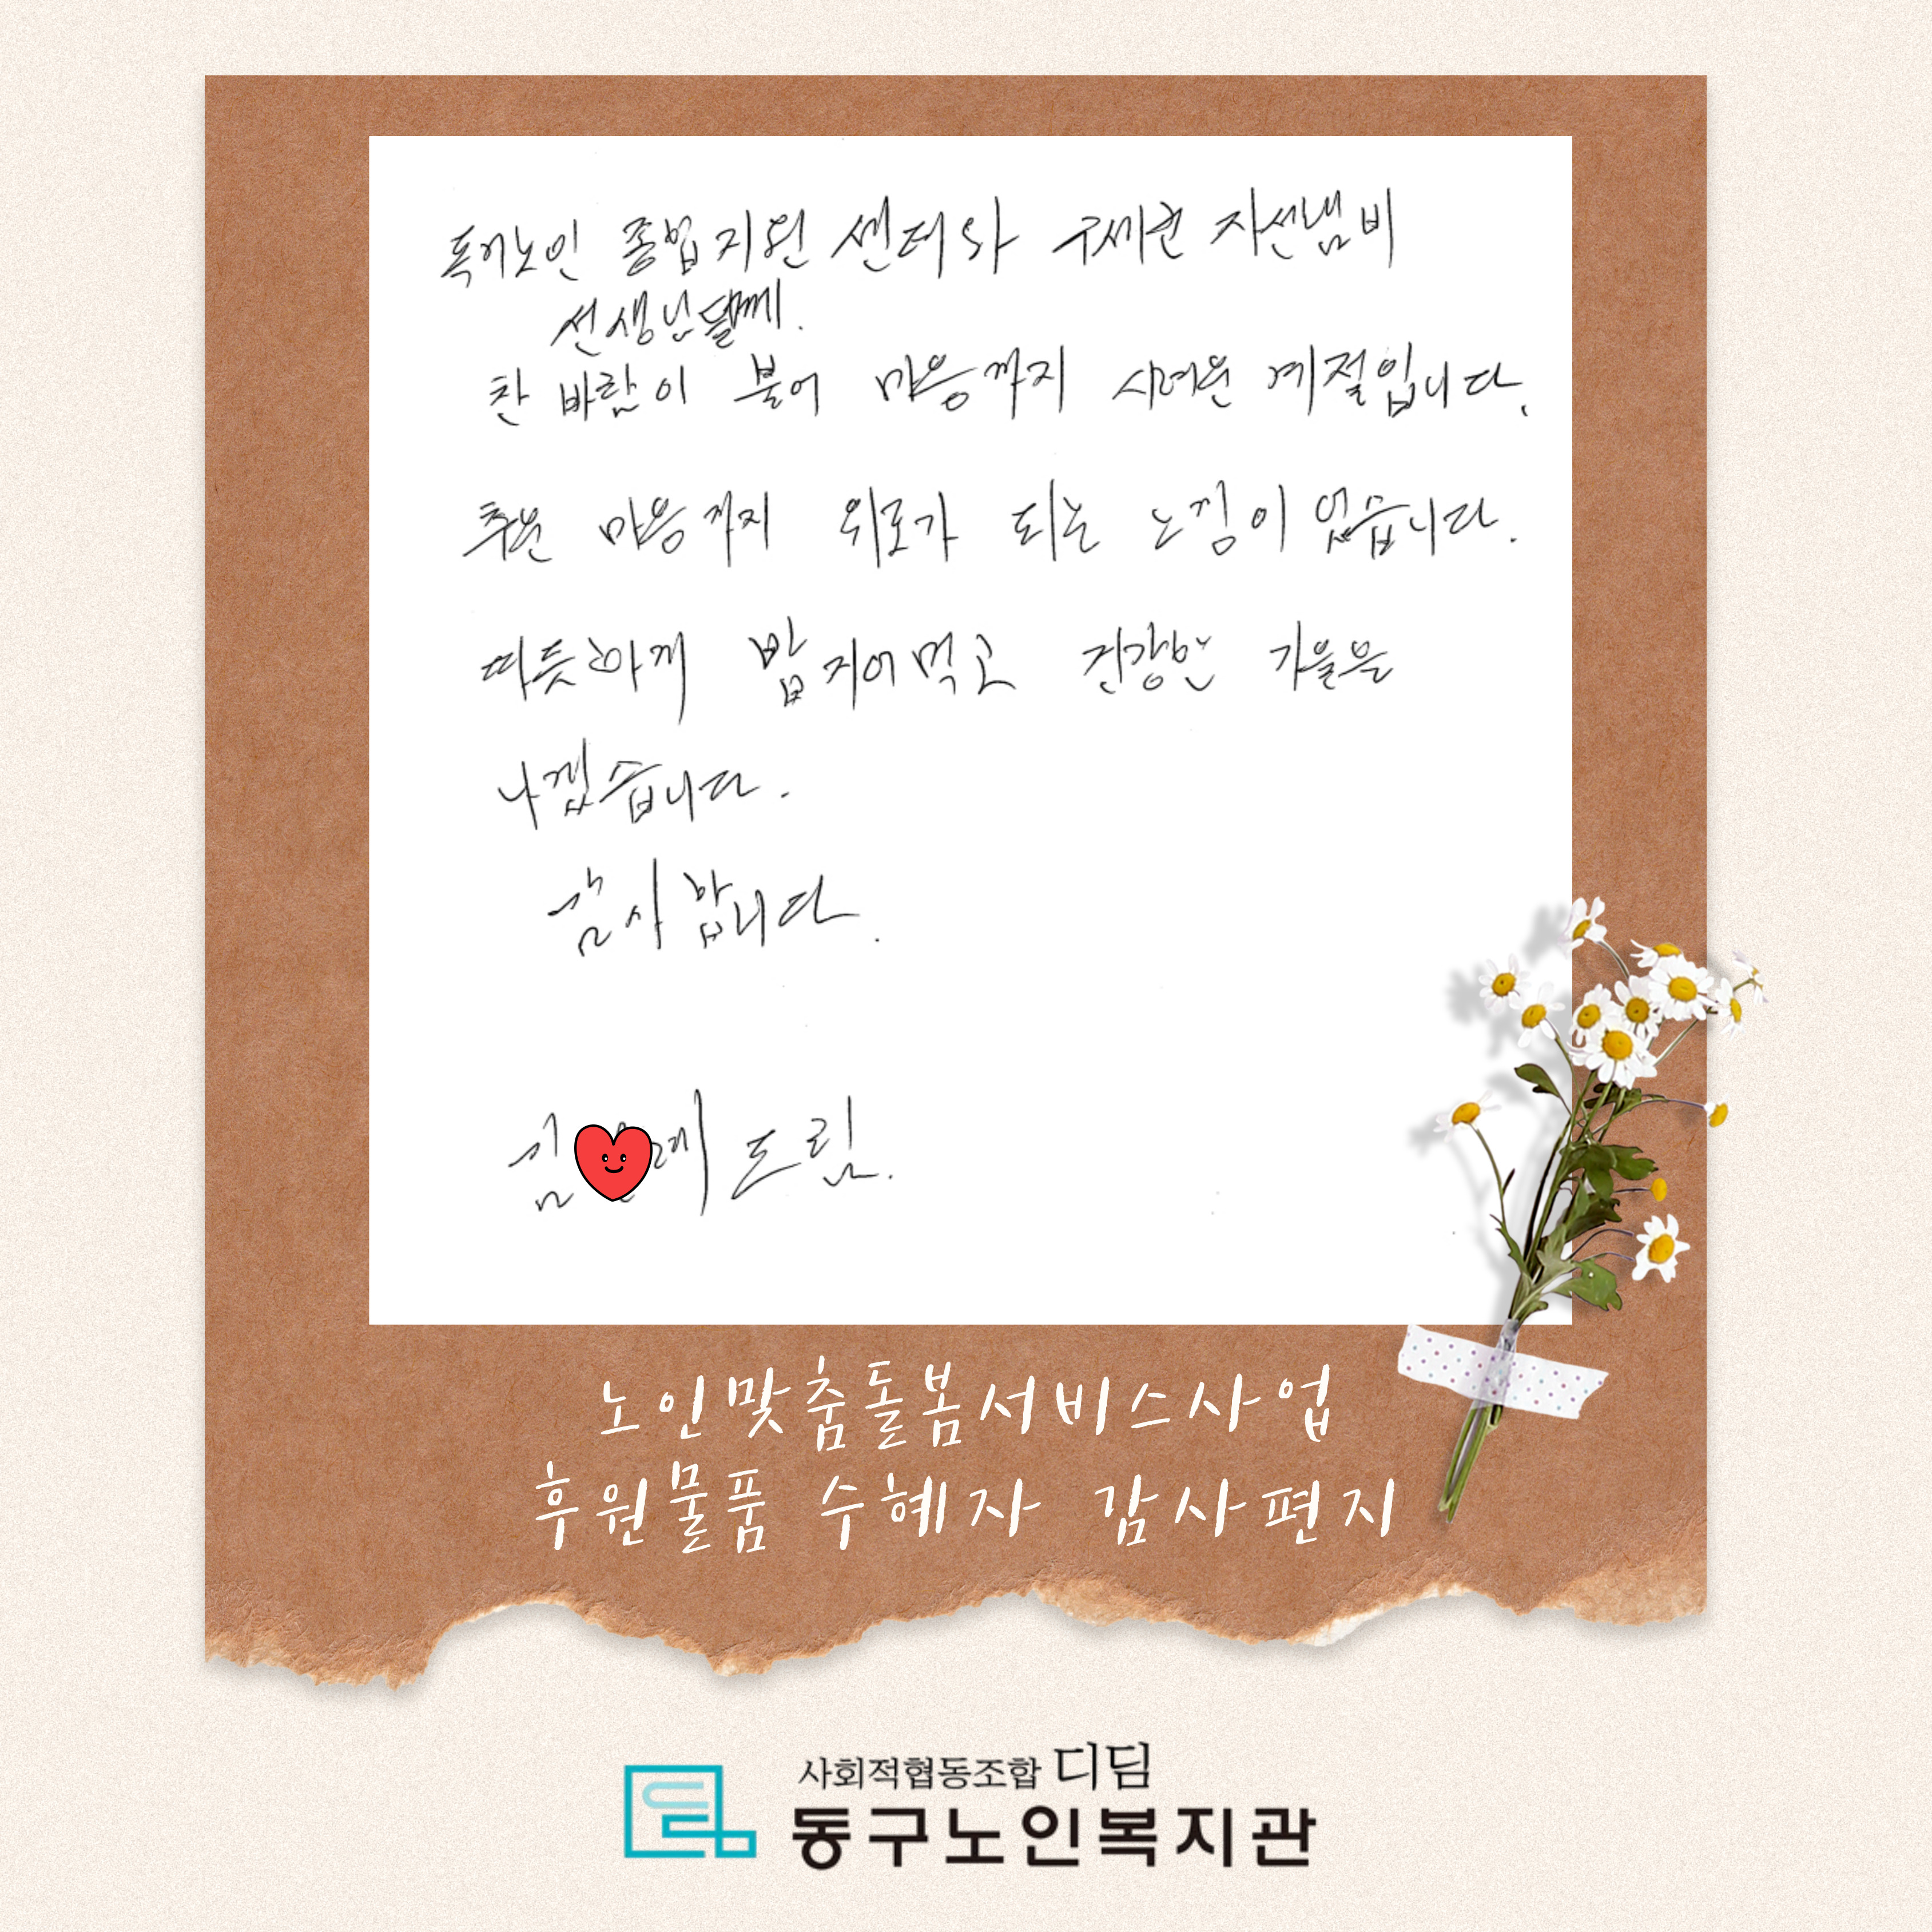 독거노인 종합지원 센터와 구세군 자선냄비
선생님들께.
찬 바람이 불어 마음까지 시려운 계절입니다.
추운 마음까지 위로가 되는 느낌이 었습니다.
따듯하게 밥 지어 먹고 건강한 가을을
나겠습니다.
감사 합니다.
김 례 드림.
노인맞춤돌봄서비스사업
후원물품 수혜자 감사편지
사회적협동조합 디딤
동구노인복지관